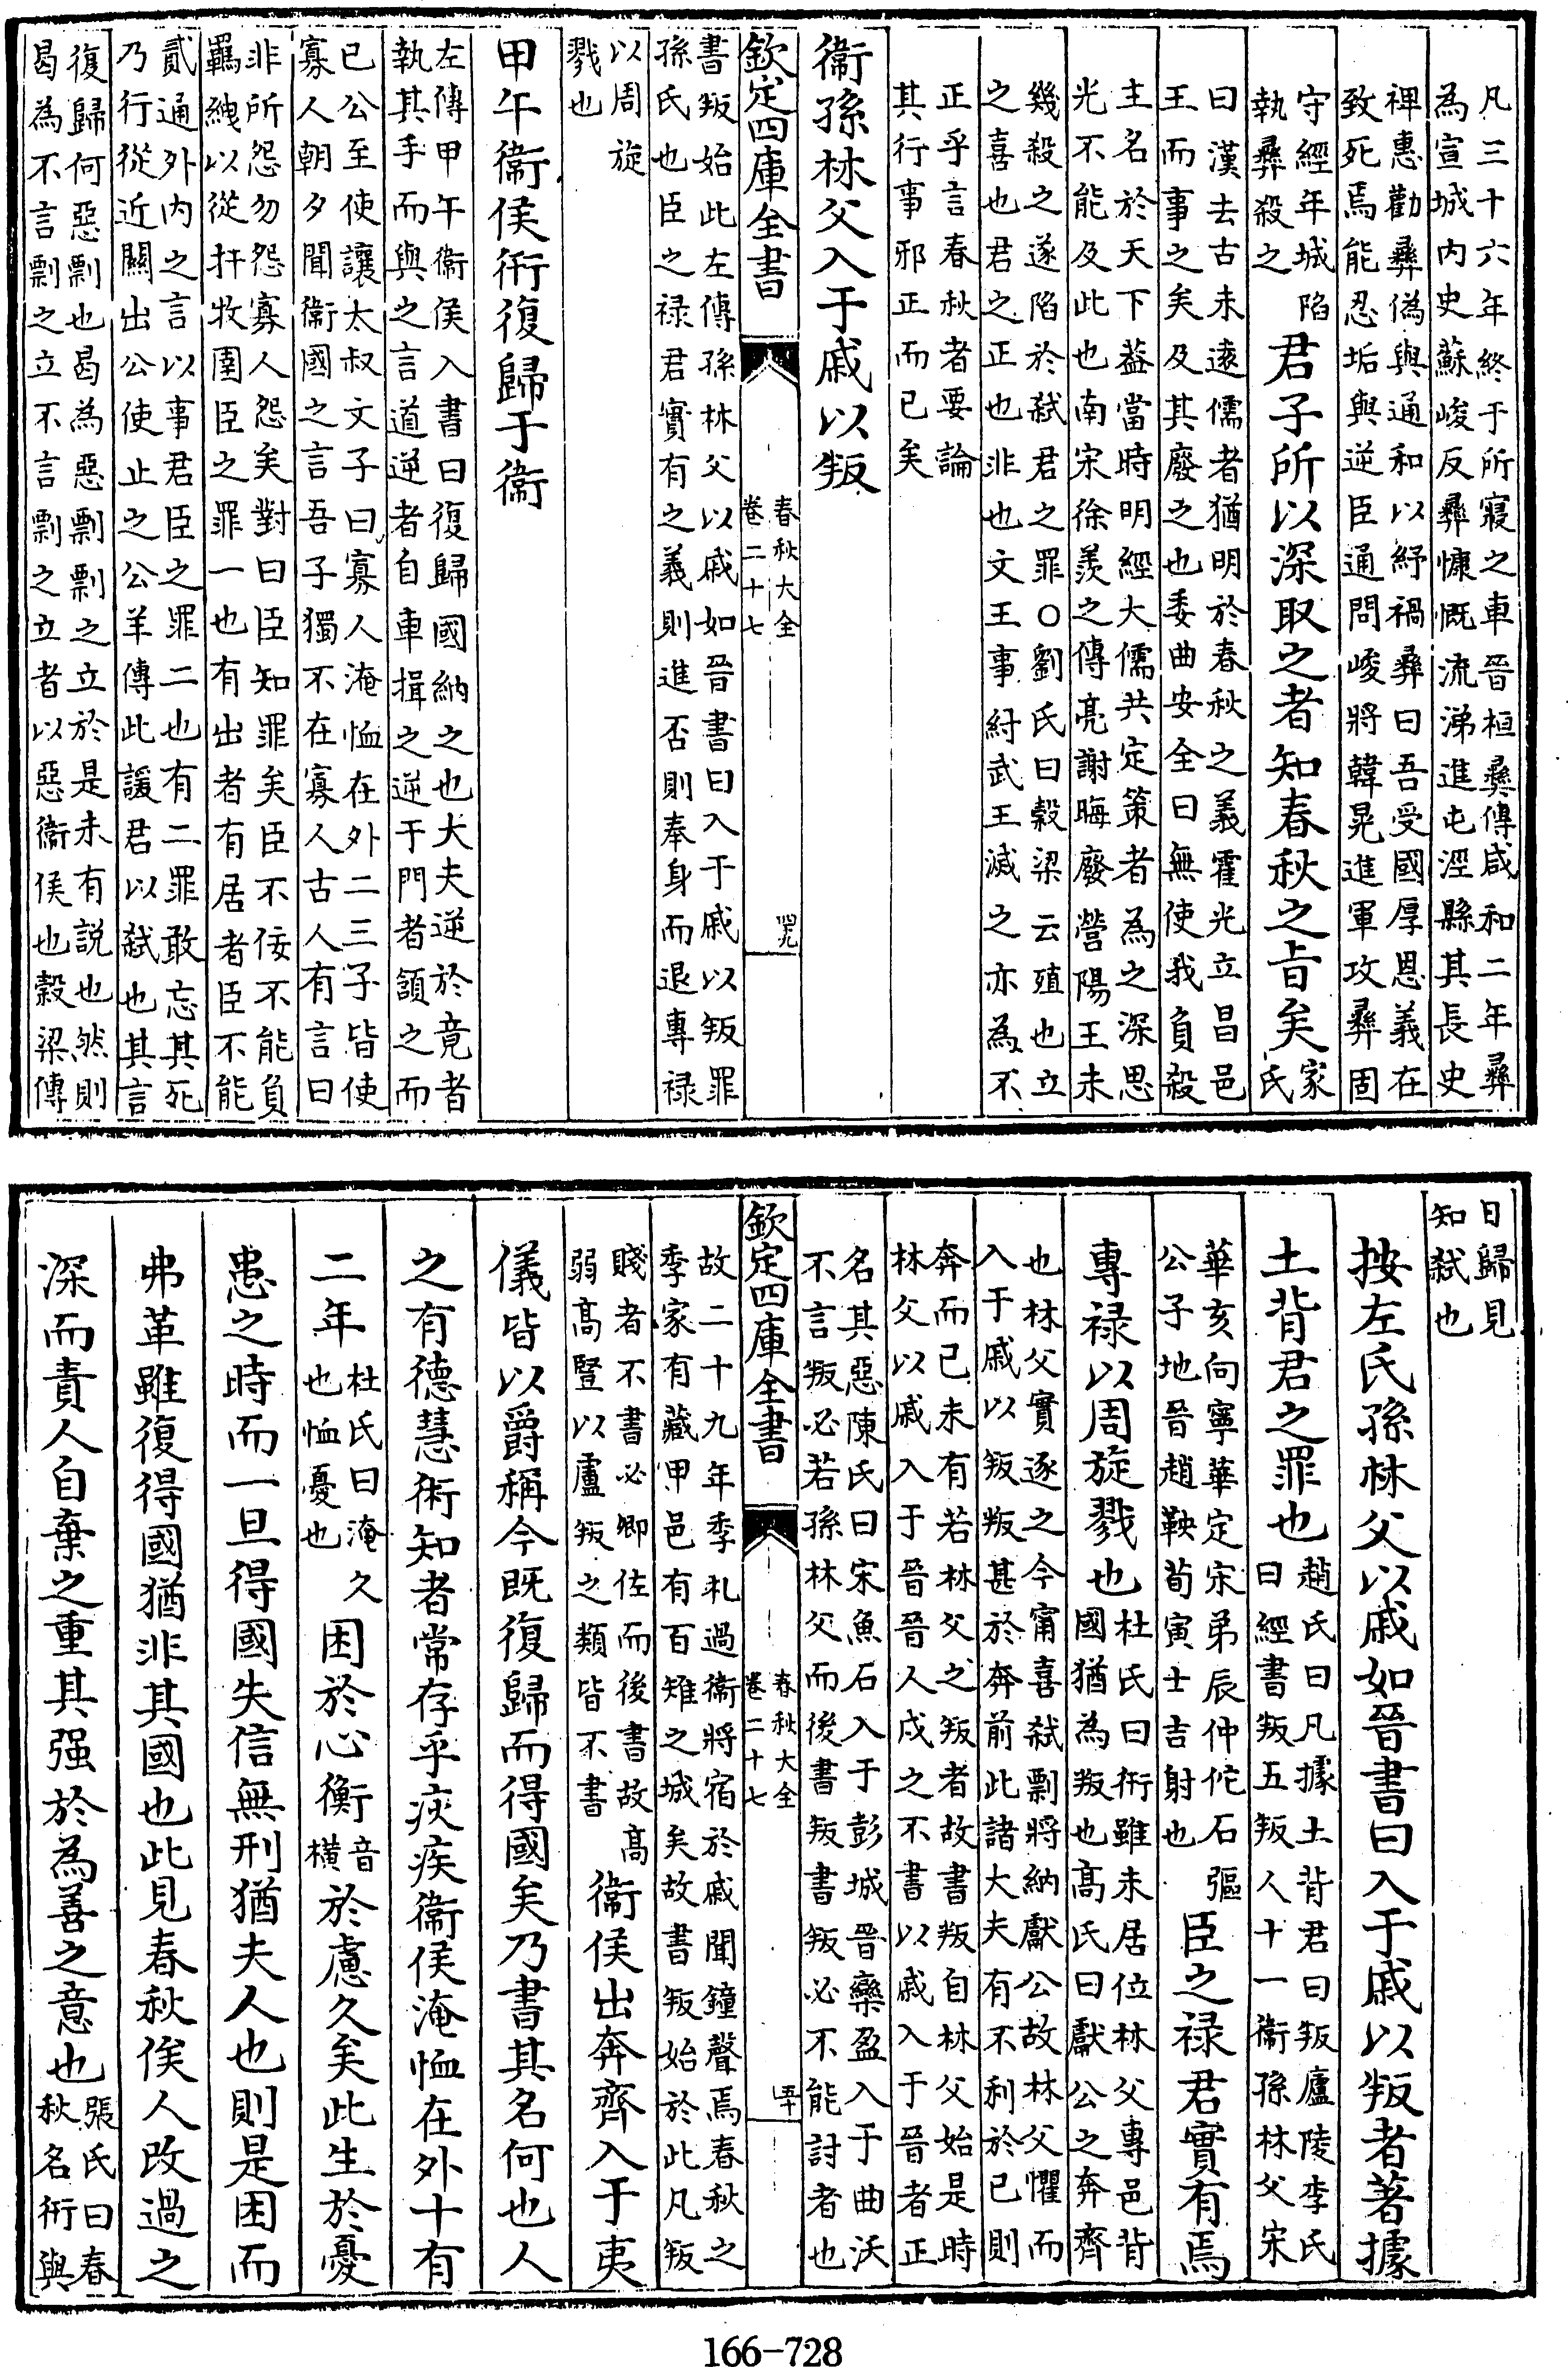 凡三十六年終于所寢之車晉桓彝傳咸和二年彝
為宣城内史蘇峻反彝慷慨流涕進屯涇縣其長史
裨惠勸彝偽與通和以紓禍彝曰吾受國厚恩義在
致死焉能忍垢與逆臣通問峻將韓晃進軍攻彝固
守經年城陷
執彝殺之
君子所以深取之者知春秋之旨矣
家
氏
曰漢去古未遠儒者猶明於春秋之義霍光立昌邑
王而事之矣及其廢之也委曲安全曰無使我負殺
主名於天下葢當時明經大儒共定策者為之深思
光不能及此也南宋徐羨之傅亮謝晦廢營陽王未
幾殺之遂陷於弑君之罪○劉氏曰榖梁云殖也立
之喜也君之之正也非也文王事紂武王滅之亦為不
正乎言春秋者要論
其行事邪正而已矣
衞孫林父入于戚以叛
欽定四庫全書
春秋大全
卷二十七
四九
書叛始此左傳孫林父以戚如晉書曰入于戚以叛罪
孫氏也臣之禄君實有之義則進否則奉身而退專禄
以周旋
戮也
甲午衞侯衎復歸于衞
左傳甲午衞侯入書曰復歸國納之也大夫逆於竟者
執其手而與之言道逆者自車揖之逆于門者頷之而
已公至使讓太叔文子曰寡人淹恤在外二三子皆使
寡人朝夕聞衞國之言吾子獨不在寡人古人有言曰
非所怨勿怨寡人怨矣對曰臣知罪矣臣不佞不能負
羈絏以從扞牧圉臣之罪一也有出者有居者臣不能
貳通外内之言以事君臣之罪二也有二罪敢忘其死
乃行從近關出公使止之公羊傳此諼君以弑也其言
復歸何惡剽也曷為惡剽剽之立於是未有説也然則
曷為不言剽之立不言剽之立者以惡衞侯也榖梁傳
日歸見
知弑也
按左氏孫林父以戚如晉書曰入于戚以叛者著據
土背君之罪也
趙氏曰凡據土背君曰叛廬陵李氏
曰經書叛五叛人十一衞孫林父宋
華亥向寧華定宋弟辰仲佗石彄
公子地晉趙鞅荀寅士吉射也
臣之禄君實有焉
專禄以周旋戮也
杜氏曰衎雖未居位林父專邑背
國猶為叛也髙氏曰獻公之奔齊
也林父實逐之今甯喜弑剽將納獻公故林父懼而
入于戚以叛叛甚於奔前此諸大夫有不利於已則
奔而已未有若林父之叛者故書叛自林父始是時
林父以戚入于晉晉人戍之不書以戚入于晉者正
名其惡陳氏曰宋魚石入于彭城晉欒盈入于曲沃
不言叛必若孫林父而後書叛書叛必不能討者也
欽定四庫全書
春秋大全
卷二十七
五十
故二十九年季札過衞將宿於戚聞鐘聲焉春秋之
季家有藏甲邑有百雉之城矣故書叛始於此凡叛
賤者不書必卿佐而後書故髙
弱髙豎以盧叛之類皆不書
衞侯出奔齊入于夷
儀皆以爵稱今既復歸而得國矣乃書其名何也人
之有德慧術知者常存乎疢疾衞侯淹恤在外十有
二年
杜氏曰淹久
也恤憂也
困於心衡
音
橫
於慮久矣此生於憂
患之時而一旦得國失信無刑猶夫人也則是困而
弗革雖復得國猶非其國也此見春秋俟人改過之
深而責人自棄之重其强於為善之意也
張氏曰春
秋名衎與
166-728